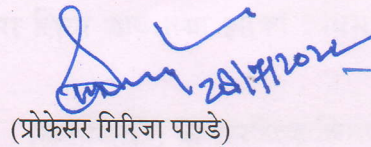 28/7/2022
(प्रोफेसर गिरिजा पाण्डे)